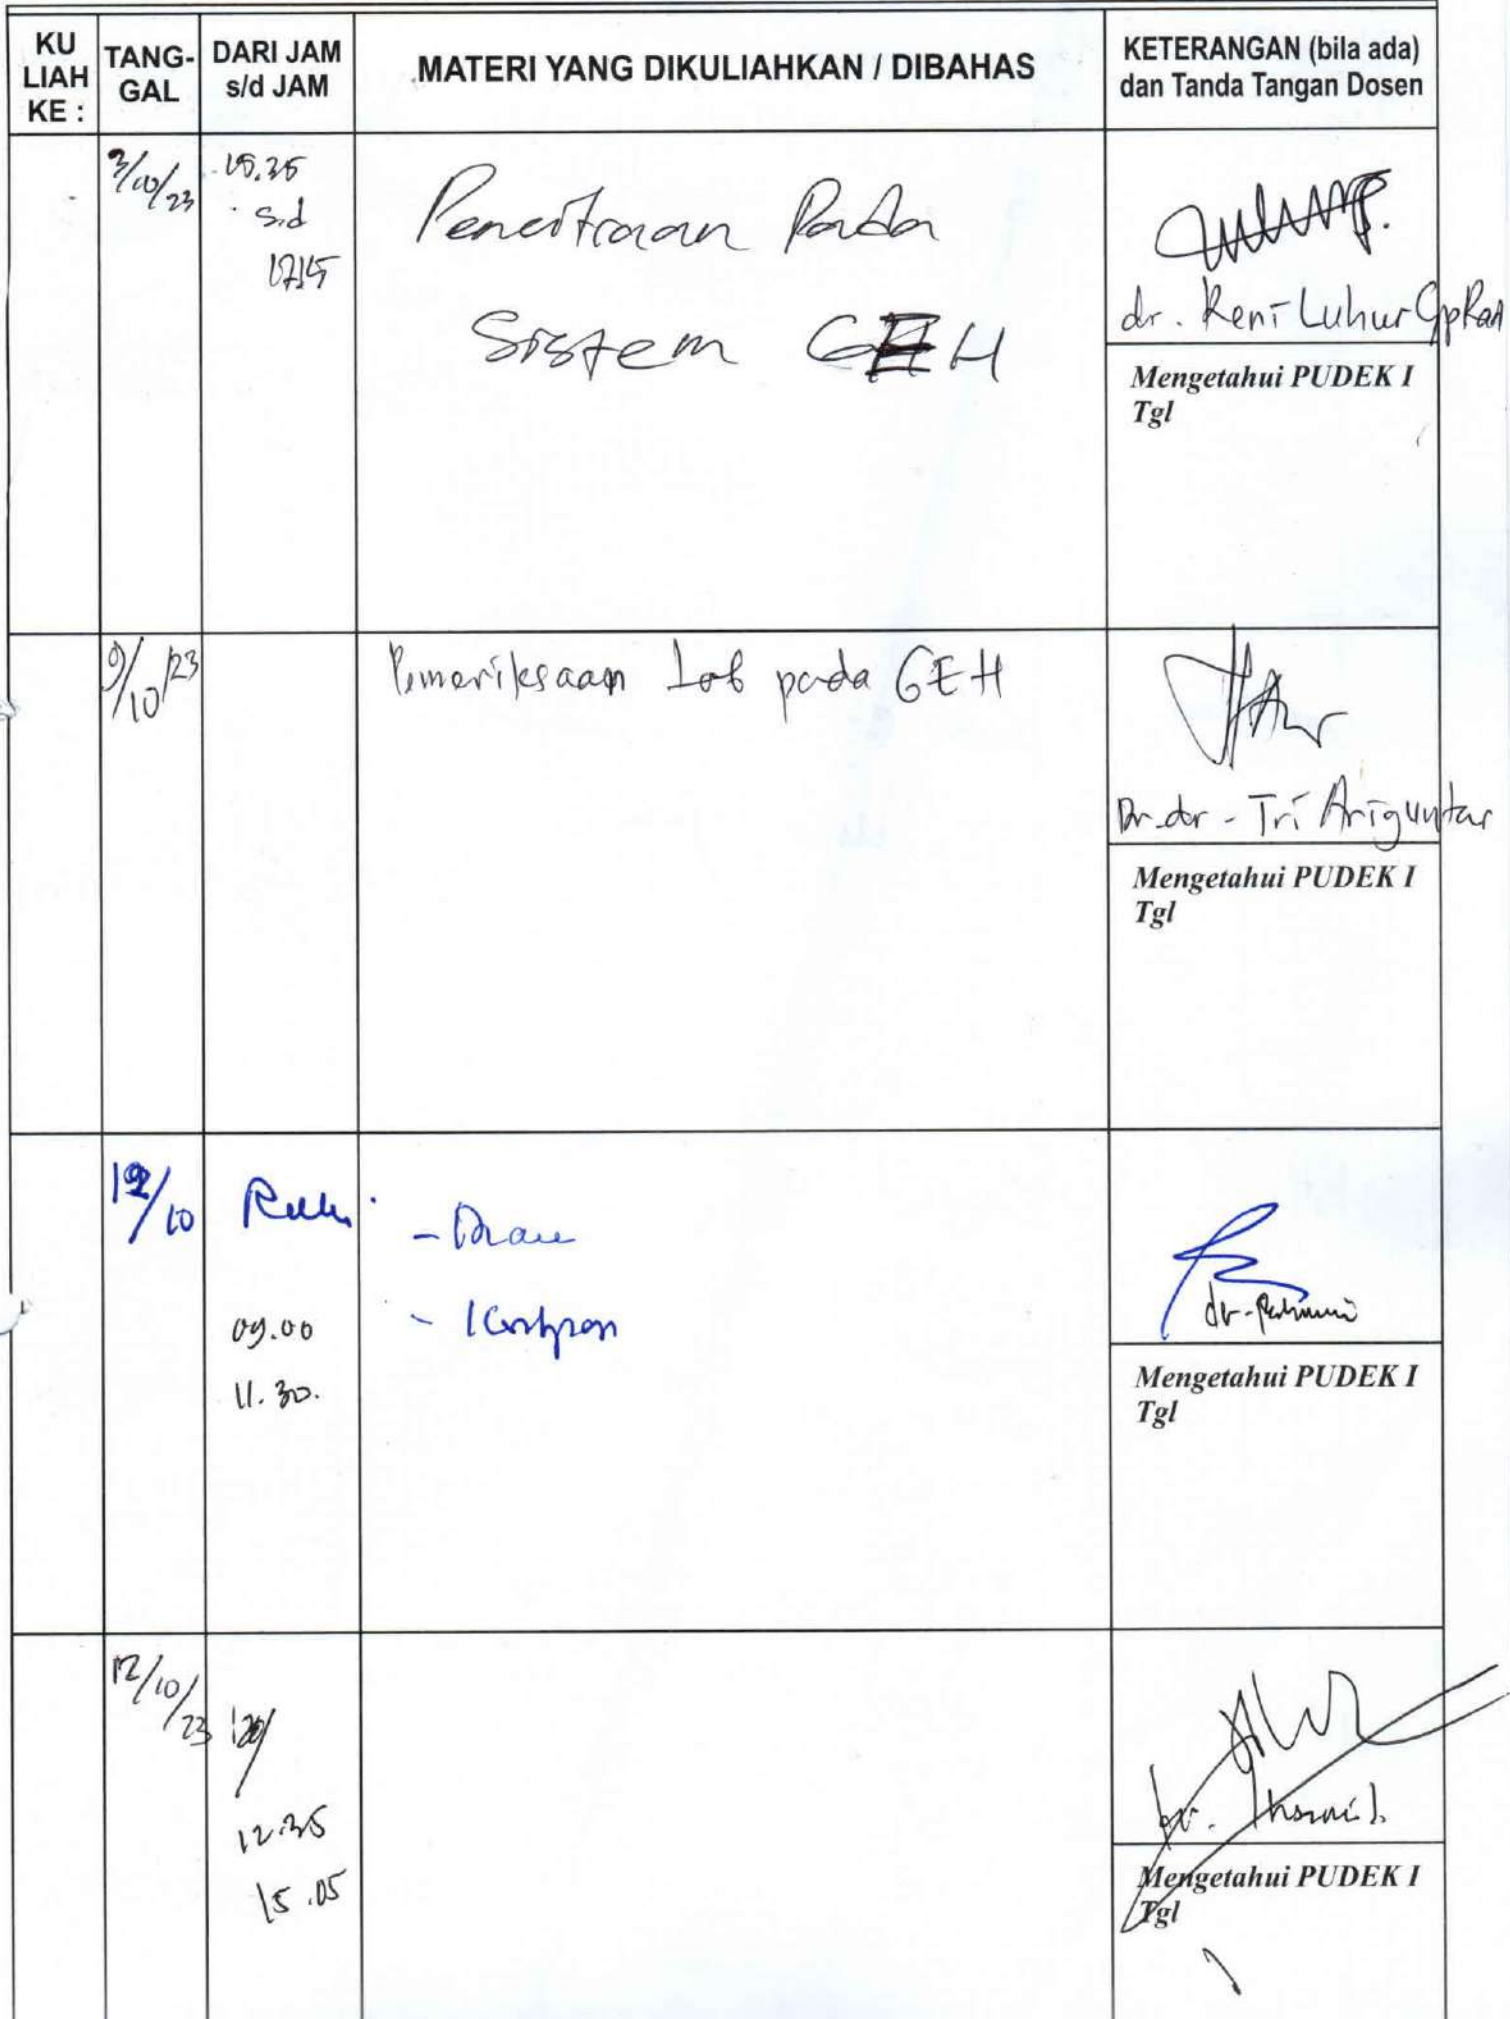 KU LIAH KE :
TANG-GAL
DARI JAM s/d JAM
MATERI YANG DIKULIAHKAN / DIBAHAS
KETERANGAN (bila ada) dan Tanda Tangan Dosen
3/10/23
15.35
s.d
1715
Pencitraan Pada
Sistem GEH
dr. Reni Luhur SpRad
Mengetahui PUDEK I
Tgl
9/10/23
Pemeriksaan Lab pada GEH
Dr. dr - Tri Ariguntar
Mengetahui PUDEK I
Tgl
12/10
09.00
11.30.
- Diare
dr.
Mengetahui PUDEK I
Tgl
12/10/23
12.35
15.05
Mengetahui PUDEK I
Tgl